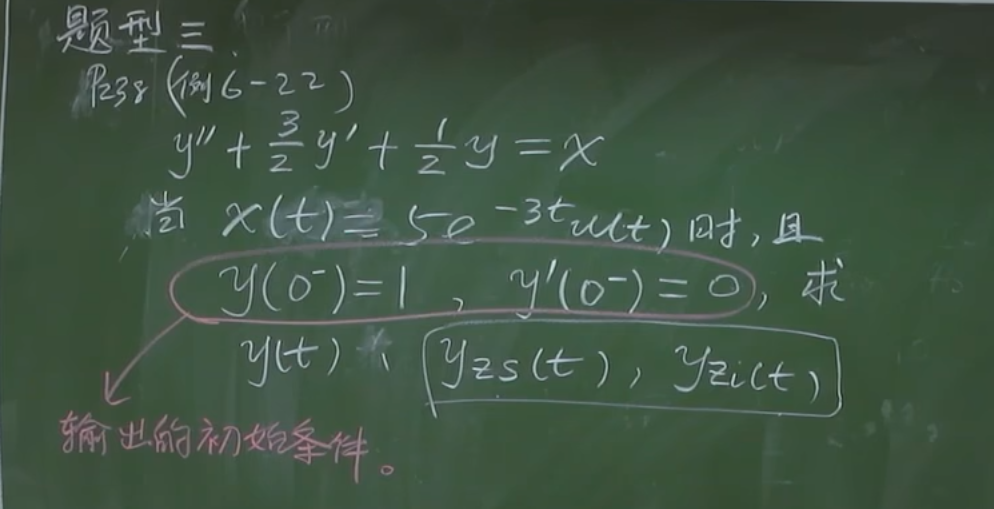 题型三
P238 (例6-22)
y″ + 3/2 y′ + 1/2 y = x
当 x(t) = 5e^{-3t}u(t) 时, 且
y(0⁻)=1 , y′(0⁻) = 0, 求
y(t) 、 yzs(t), yzi(t)
输出的初始条件。